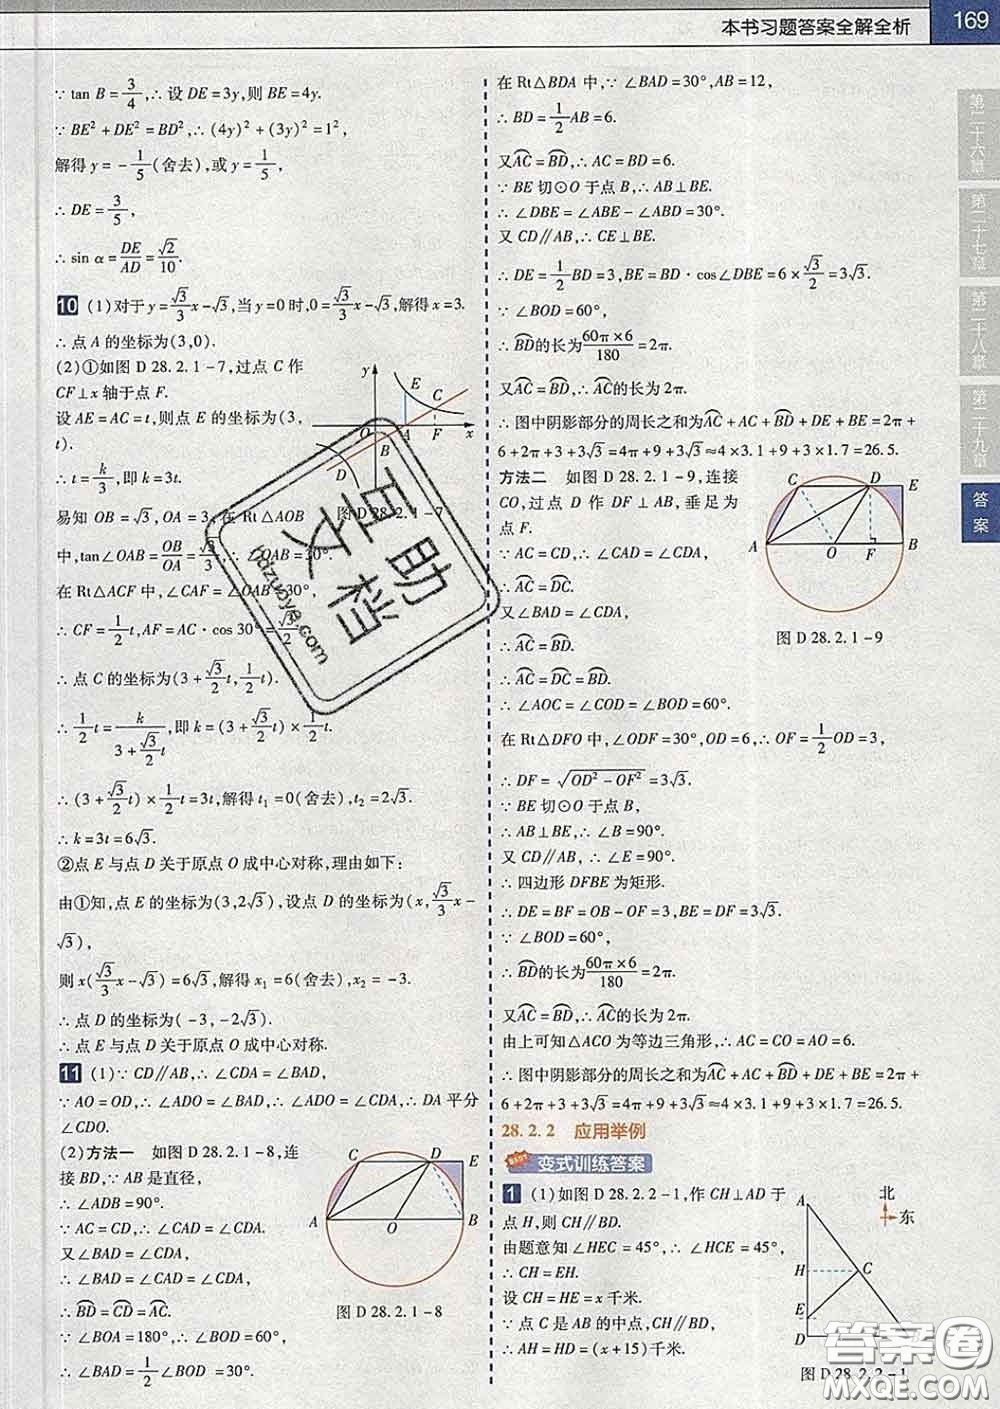 本书习题答案全解全析 169
∵ tan B = 3/4, ∴ 设 DE = 3y, 则 BE = 4y.
∵ BE² + DE² = BD², ∴ (4y)² + (3y)² = 1²,
解得 y = -1/5 (舍去), 或 y = 1/5,
∴ DE = 3/5,
∴ sin α = DE/AD = √2/10.
10 (1) 对于 y = √3/3 x - √3, 当 y = 0 时, 0 = √3/3 x - √3, 解得 x = 3.
∴ 点 A 的坐标为 (3,0).
(2) ①如图 D 28.2.1-7, 过点 C 作
CF⊥x 轴于点 F.
设 AE = AC = t, 则点 E 的坐标为 (3,
t).
∴ t = k/3, 即 k = 3t.
易知 OB = √3, OA = 3, 在 Rt△AOB
中, tan∠OAB = OB/OA = √3/3, ∴ ∠OAB = 30°.
在 Rt△ACF 中, ∠CAF = ∠OAB = 30°,
∴ CF = 1/2 t, AF = AC·cos 30° = √3/2 t,
∴ 点 C 的坐标为 (3 + √3/2 t, 1/2 t),
∴ 1/2 t = k/(3 + √3/2 t), 即 k = (3 + √3/2 t) × 1/2 t.
∴ (3 + √3/2 t) × 1/2 t = 3t, 解得 t₁ = 0 (舍去), t₂ = 2√3.
∴ k = 3t = 6√3.
②点 E 与点 D 关于原点 O 成中心对称, 理由如下:
由①知, 点 E 的坐标为 (3, 2√3), 设点 D 的坐标为 (x, √3/3 x -
√3),
则 x(√3/3 x - √3) = 6√3, 解得 x₁ = 6 (舍去), x₂ = -3.
∴ 点 D 的坐标为 (-3, -2√3).
∴ 点 E 与点 D 关于原点 O 成中心对称.
y E C O A F x B D
图 D 28.2.1-7
11 (1) ∵ CD∥AB, ∴ ∠CDA = ∠BAD,
∵ AO = OD, ∴ ∠ADO = ∠BAD, ∴ ∠ADO = ∠CDA, ∴ DA 平分
∠CDO.
(2) 方法一 如图 D 28.2.1-8, 连
接 BD, ∵ AB 是直径,
∴ ∠ADB = 90°.
∵ AC = CD, ∴ ∠CAD = ∠CDA.
又∠BAD = ∠CDA,
∴ ∠BAD = ∠CAD = ∠CDA,
∴ ⌒BD = ⌒CD = ⌒AC.
∵ ∠BOA = 180°, ∴ ∠BOD = 60°,
∴ ∠BAD = 1/2 ∠BOD = 30°.
C D E A O B
图 D 28.2.1-8
在 Rt△BDA 中, ∵ ∠BAD = 30°, AB = 12,
∴ BD = 1/2 AB = 6.
又⌒AC = ⌒BD, ∴ AC = BD = 6.
∵ BE 切⊙O 于点 B, ∴ AB⊥BE.
∴ ∠DBE = ∠ABE - ∠ABD = 30°.
又 CD∥AB, ∴ CE⊥BE.
∴ DE = 1/2 BD = 3, BE = BD·cos∠DBE = 6 × √3/2 = 3√3.
∵ ∠BOD = 60°,
∴ ⌒BD的长为 60π×6/180 = 2π.
又⌒AC = ⌒BD, ∴ ⌒AC的长为 2π.
∴ 图中阴影部分的周长之和为⌒AC + AC + ⌒BD + DE + BE = 2π +
6 + 2π + 3 + 3√3 = 4π + 9 + 3√3 ≈ 4×3.1 + 9 + 3×1.7 = 26.5.
方法二 如图 D 28.2.1-9, 连接
CO, 过点 D 作 DF⊥AB, 垂足为
点 F.
∵ AC = CD, ∴ ∠CAD = ∠CDA,
∴ ⌒AC = ⌒DC.
又∠BAD = ∠CDA,
∴ ⌒AC = ⌒BD.
∴ ⌒AC = ⌒DC = ⌒BD.
∴ ∠AOC = ∠COD = ∠BOD = 60°.
C D E A O F B
图 D 28.2.1-9
在 Rt△DFO 中, ∠ODF = 30°, OD = 6, ∴ OF = 1/2 OD = 3,
∴ DF = √(OD² - OF²) = 3√3.
∵ BE 切⊙O 于点 B,
∴ AB⊥BE, ∴ ∠B = 90°.
又 CD∥AB, ∴ ∠E = 90°.
∴ 四边形 DFBE 为矩形.
∴ DE = BF = OB - OF = 3, BE = DF = 3√3.
∵ ∠BOD = 60°,
∴ ⌒BD的长为 60π×6/180 = 2π.
又⌒AC = ⌒BD, ∴ ⌒AC的长为 2π.
由上可知△ACO 为等边三角形, ∴ AC = CO = AO = 6.
∴ 图中阴影部分的周长之和为⌒AC + AC + ⌒BD + DE + BE = 2π +
6 + 2π + 3 + 3√3 = 4π + 9 + 3√3 ≈ 4×3.1 + 9 + 3×1.7 = 26.5.
28.2.2 应用举例
变式训练答案
1 (1) 如图 D 28.2.2-1, 作 CH⊥AD 于
点 H, 则 CH∥BD.
由题意知∠HEC = 45°, ∴ ∠HCE = 45°,
∴ CH = EH.
设 CH = HE = x 千米.
∵ 点 C 是 AB 的中点, CH∥BD,
∴ AH = HD = (x + 15) 千米.
北 东 A H C E D
图 D 28.2.2-1
第二十六章
第二十七章
第二十八章
第二十九章
答案
互助文档
hdzuoye.com
答案圈
MXQE.COM